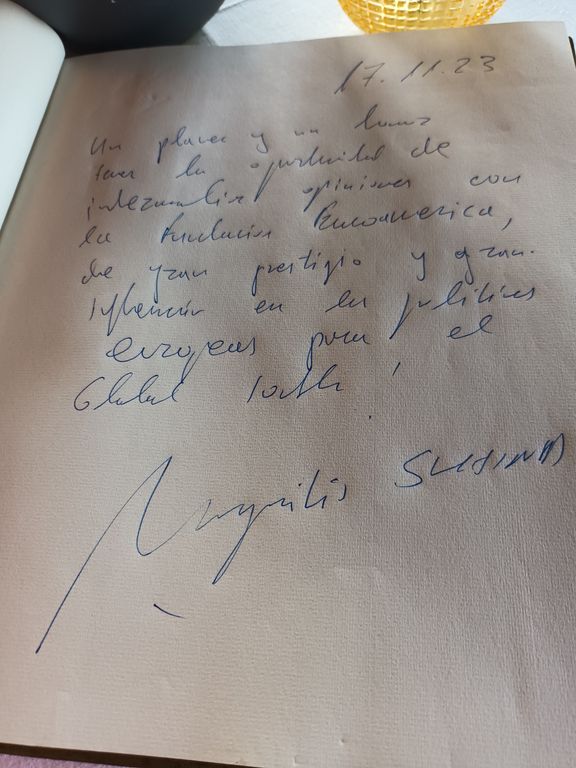 17.11.23
Un placer y un honor
tener la oportunidad de
intercambiar opiniones con
la Fundación Euroamerica,
de gran prestigio y gran
influencia en las políticas
europeas para el
Global South!